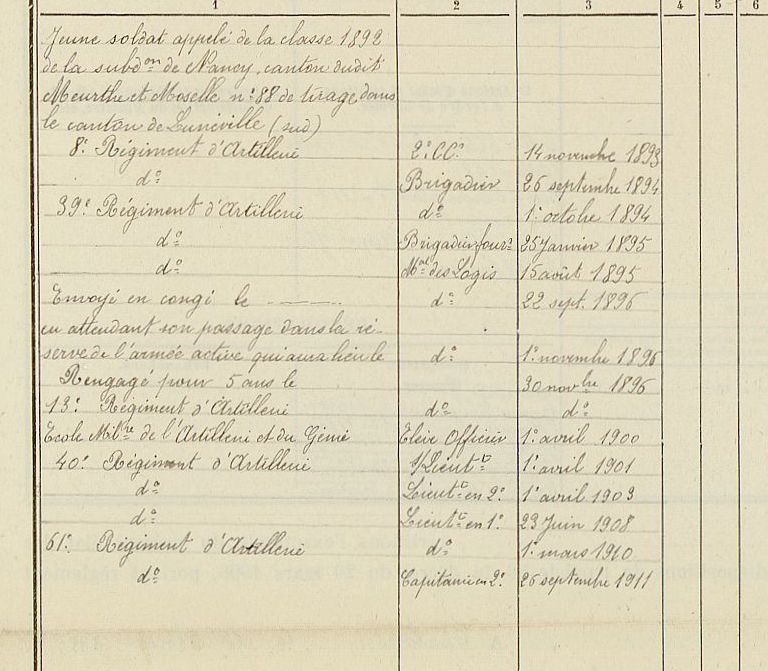 1 2 3 4 5 6
Jeune soldat appelé de la classe 1892
de la subdon de Nancy, canton dudit
Meurthe et Moselle n° 88 de tirage dans
le canton de Lunéville (sud)
8e Régiment d'Artillerie 2e CC. 14 novembre 1893
do Brigadier 26 septembre 1894
39e Régiment d'Artillerie do 1er octobre 1894
do Brigadier four. 25 Janvier 1895
do Mal des Logis 15 août 1895
Envoyé en congé le ——— do 22 sept. 1896
en attendant son passage dans la ré-
serve de l'armée active qui aura lieu le do 1er novembre 1896
Rengagé pour 5 ans le 30 novbre 1896
13e Régiment d'Artillerie do do
Ecole Milre de l'Artillerie et du Génie Elève Officier 1er avril 1900
40e Régiment d'Artillerie s/Lieutt 1er avril 1901
do Lieutt en 2e 1er avril 1903
do Lieutt en 1er 23 Juin 1908
61e Régiment d'Artillerie do 1er mars 1910
do Capitaine en 2e 26 septembre 1911